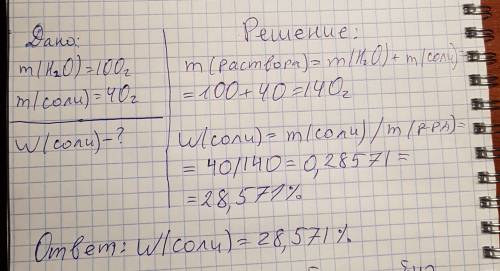 Дано:
m(H₂O)=100г
m(соли)=40г
W(соли)-?
Решение:
m(раствора)=m(H₂O)+m(соли)=
=100+40=140г
W(соли)=m(соли)/m(р-ра)=
=40/140=0,28571=
=28,571%
Ответ: W(соли)=28,571%